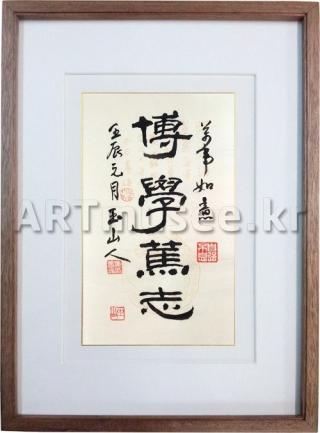 萬事如意
博學蔿志
壬辰元月 玉山人
ARTmusee.kr